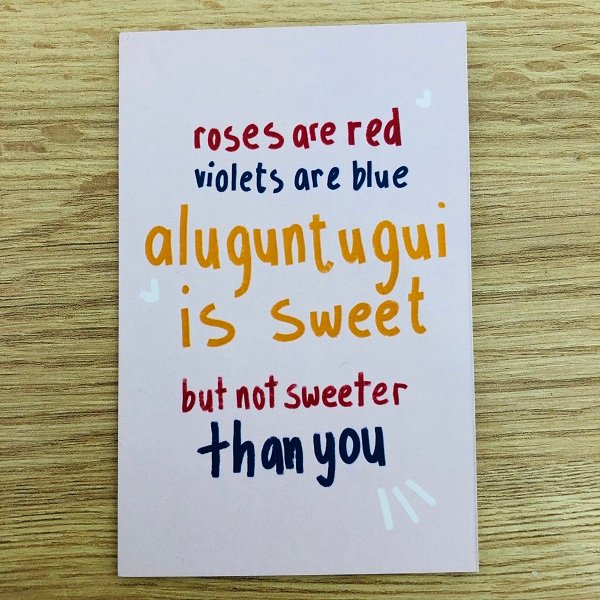 roses are red
violets are blue
aluguntugui
is sweet
but not sweeter
than you